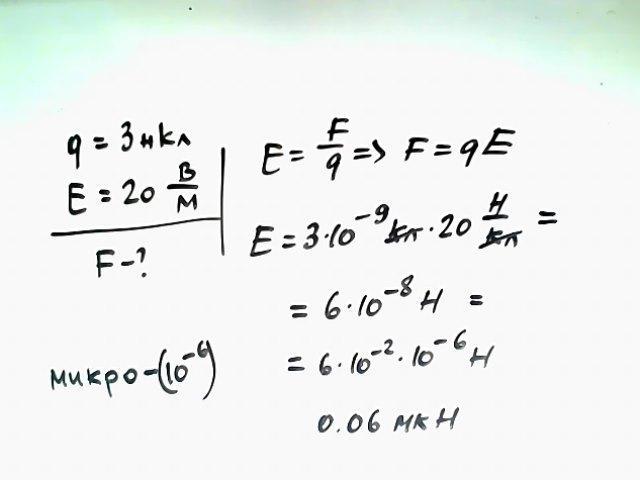 q = 3 нкл
E = 20 В/м
F - ?
E = F/q => F = qE
E = 3·10⁻⁹ кл · 20 Н/кл =
= 6·10⁻⁸ Н =
= 6·10⁻²·10⁻⁶ Н
0.06 мкН
микро-(10⁻⁶)